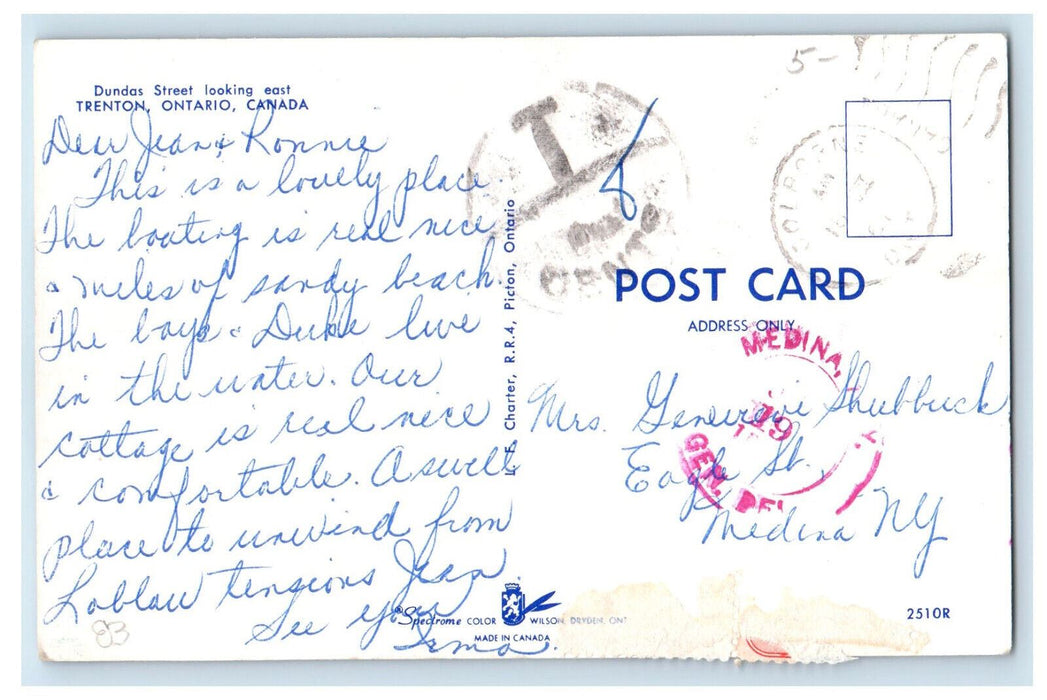 Dundas Street looking east
TRENTON, ONTARIO, CANADA
Dear Jean & Ronnie
This is a lovely place
The boating is real nice
& miles of sandy beach.
The boys & Duke live
in the water. Our
cottage is real nice
& comfortable. A swell
place to unwind from
Loblaw tensions Jean.
See you
Irma.
83
L. E. Charter, R.R.4, Picton, Ontario
T
8
CENTS
5-
COLBORNE
POST CARD
ADDRESS ONLY
MEDINA,
19
GEN. DEL
Mrs. Genevieve Shubbuck
Eagle St.
Medina NY
Spectrome COLOR WILSON, DRYDEN, ONT
MADE IN CANADA
2510R